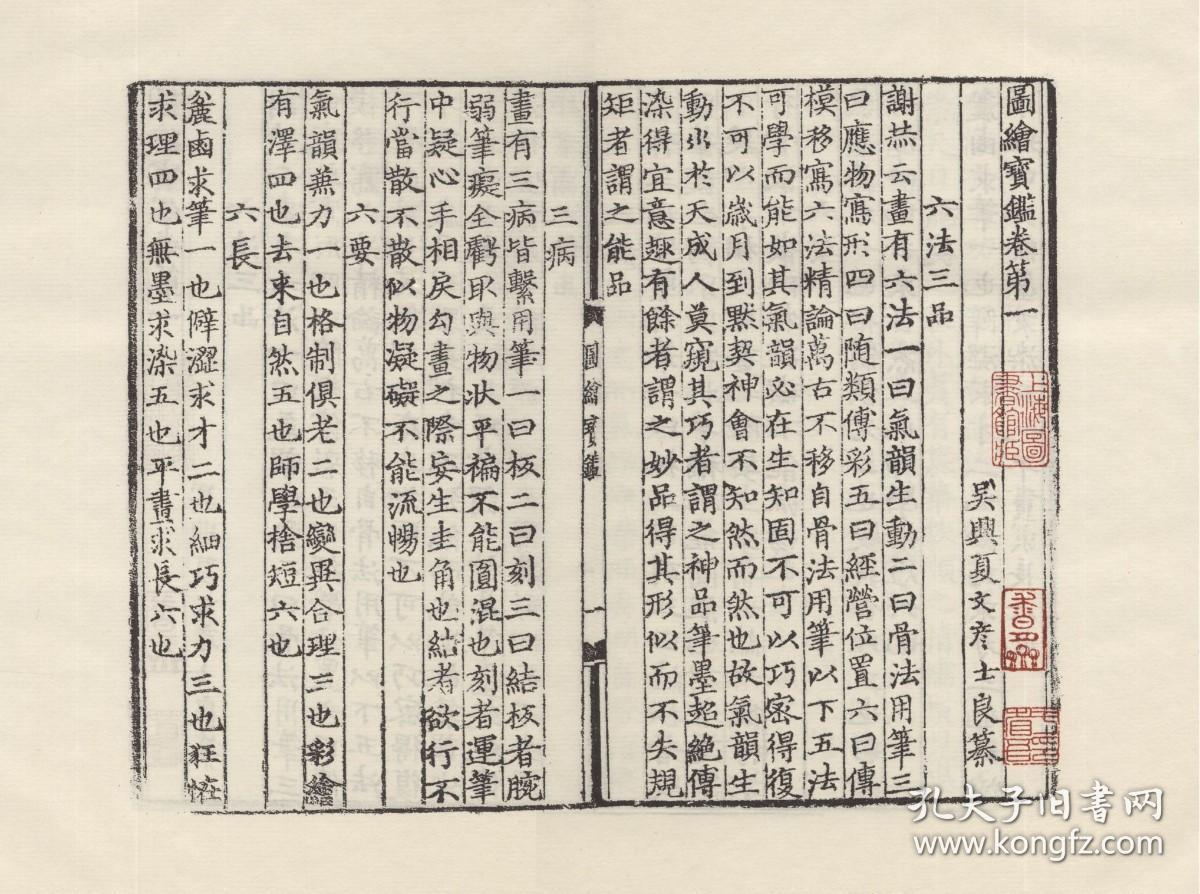 圖繪寶鑑卷第一
吳興夏文彥士良纂
六法三品
謝赫云畫有六法一曰氣韻生動二曰骨法用筆三
曰應物寫形四曰随類傳彩五曰經營位置六曰傳
模移寫六法精論萬古不移自骨法用筆以下五法
可學而能如其氣韻必在生知固不可以巧密得復
不可以歲月到黙契神會不知然而然也故氣韻生
動出於天成人莫窺其巧者謂之神品筆墨超絶傳
染得宜意趣有餘者謂之妙品得其形似而不失規
矩者謂之能品
圖繪寶鑑
一
三病
畫有三病皆繫用筆一曰板二曰刻三曰結板者腕
弱筆癡全虧取與物状平褊不能圓混也刻者運筆
中疑心手相戾勾畫之際妄生圭角也結者欲行不
行當散不散似物凝礙不能流暢也
六要
氣韻兼力一也格制俱老二也變異合理三也彩繪
有澤四也去来自然五也師學捨短六也
六長
麄鹵求筆一也僻澀求才二也細巧求力三也狂怪
求理四也無墨求染五也平畫求長六也
上海圖
書館藏
孔夫子旧书网
www.kongfz.com